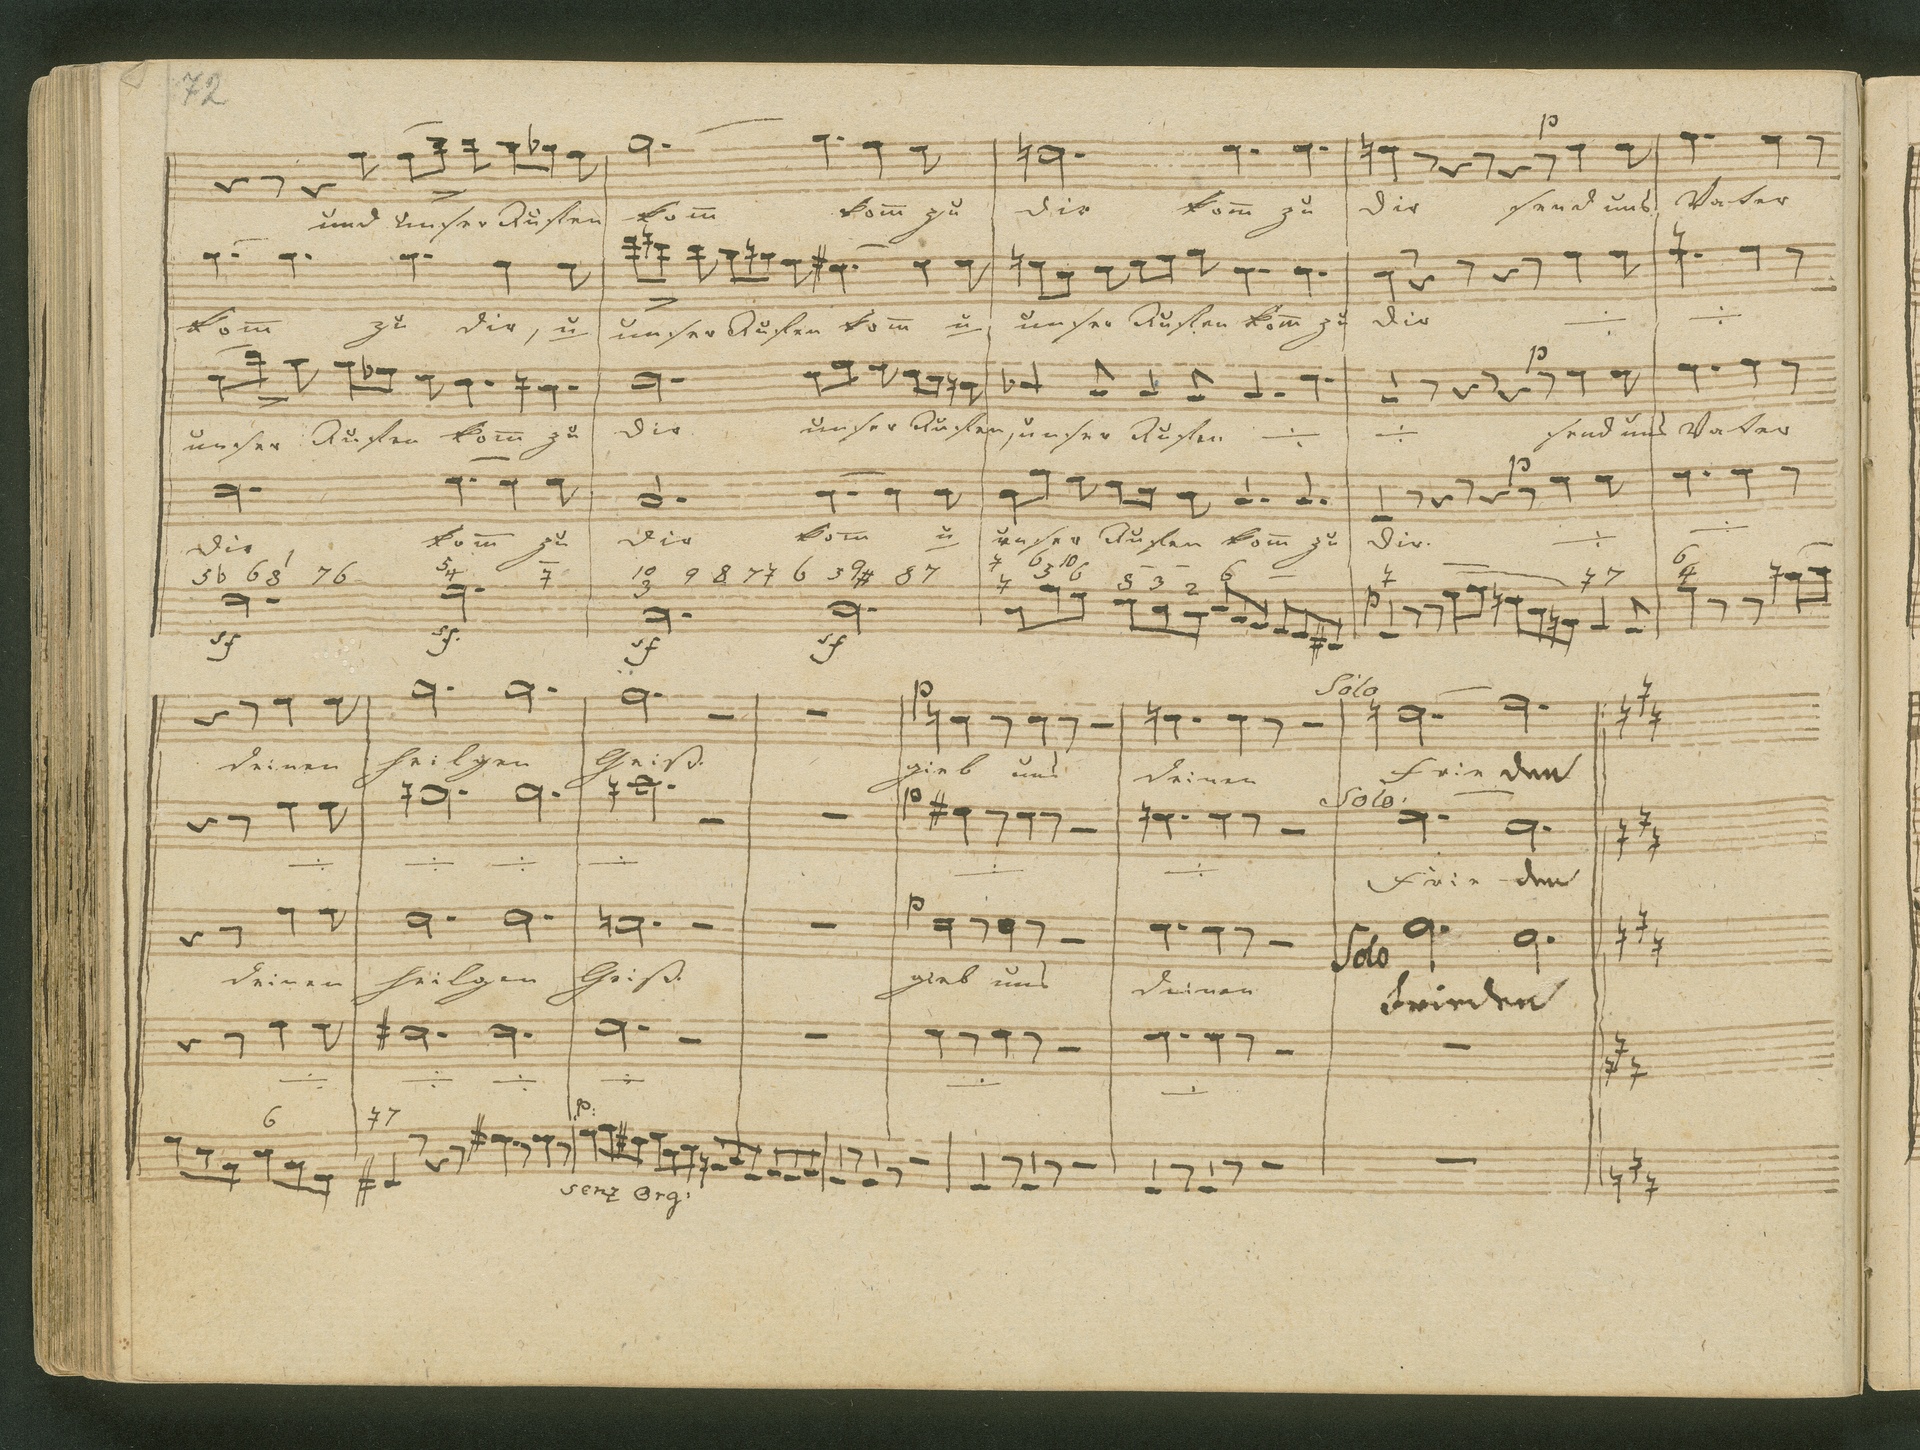 72
p
und unser Rufen kom̅ kom̅ zu dir kom̅ zu dir send uns Vater
kom̅ zu dir, u unser Rufen kom̅ u unser Rufen kom̅ zu dir
p
unser Rufen kom̅ zu dir unser Rufen, unser Rufen send uns Vater
p
dir, kom̅ zu dir kom̅ u unser Rufen kom̅ zu dir.
p
sf sf. sf sf
p Solo
deinen heilgen Geist. gieb uns deinen Frieden
p Solo.
Frieden
p Solo
deinen heilgen Geist. gieb uns deinen Frieden
6 p:
senz Org: